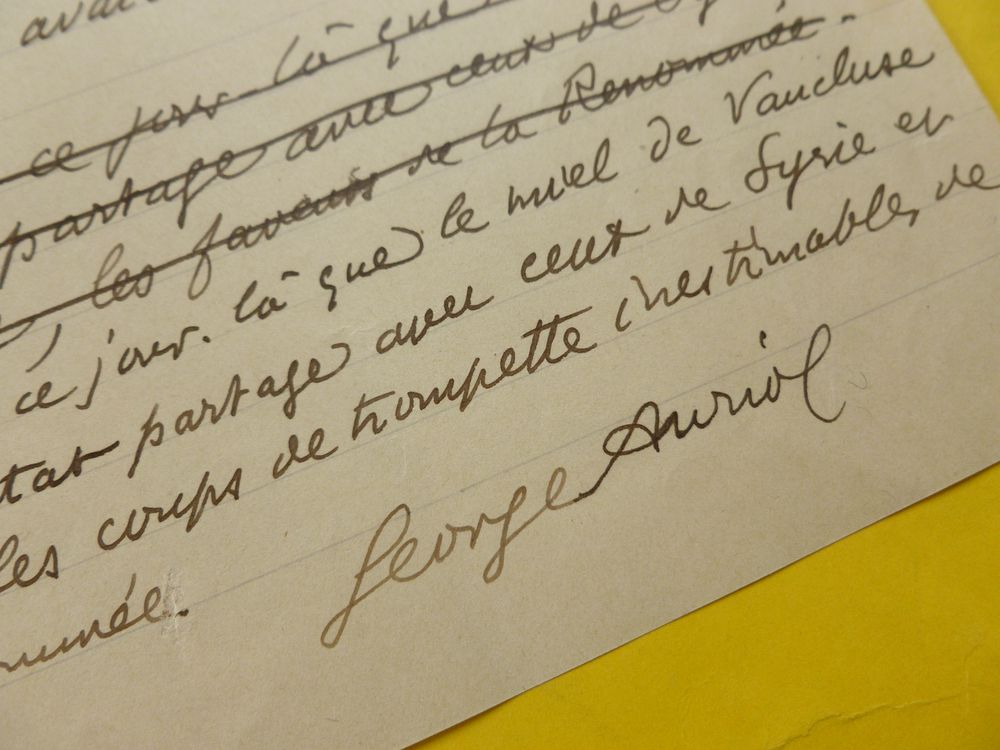 avai
ce jour là que
partage avec ceux de Sy
les faveurs de la Renommée.
ce jour-là que le miel de Vaucluse
tat partage avec ceux de Syrie et
les coups de trompette inestimables de
ommée.
George Auriol